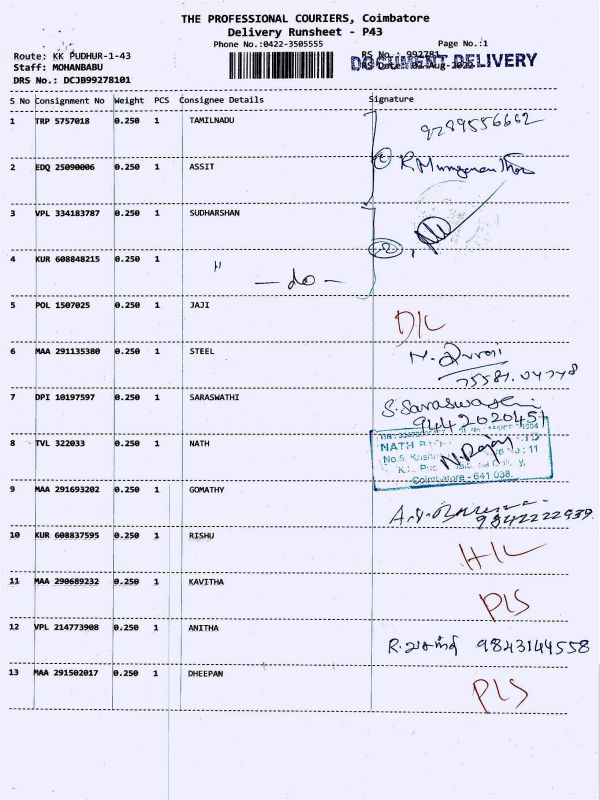 THE PROFESSIONAL COURIERS, Coimbatore
Delivery Runsheet - P43
Phone No.:0422-3505555
Page No.:1
Route: KK PUDHUR-1-43
RS No.: 992781
Staff: MOHANBABU
DRS Date: 02-Aug-2022
DOCUMENT DELIVERY
DRS No.: DCJB99278101
S No Consignment No Weight PCS Consignee Details Signature
1 TRP 5757018 0.250 1 TAMILNADU
9289556662
2 EDQ 25090006 0.250 1 ASSIT
3 VPL 334183787 0.250 1 SUDHARSHAN
4 KUR 608848215 0.250 1 " — do —
5 POL 1507025 0.250 1 JAJI D/L
6 MAA 291135380 0.250 1 STEEL
7 DPI 10197597 0.250 1 SARASWATHI S. Saraswathi
9442020451
8 TVL 322033 0.250 1 NATH N. Rajay
NATH
No.5, : 11
Coimbatore - 641 038.
9 MAA 291693202 0.250 1 GOMATHY
9842222939
10 KUR 608837595 0.250 1 RISHU H/L
11 MAA 290689232 0.250 1 KAVITHA PLS
12 VPL 214773908 0.250 1 ANITHA R. 9843144558
13 MAA 291502017 0.250 1 DHEEPAN PLS